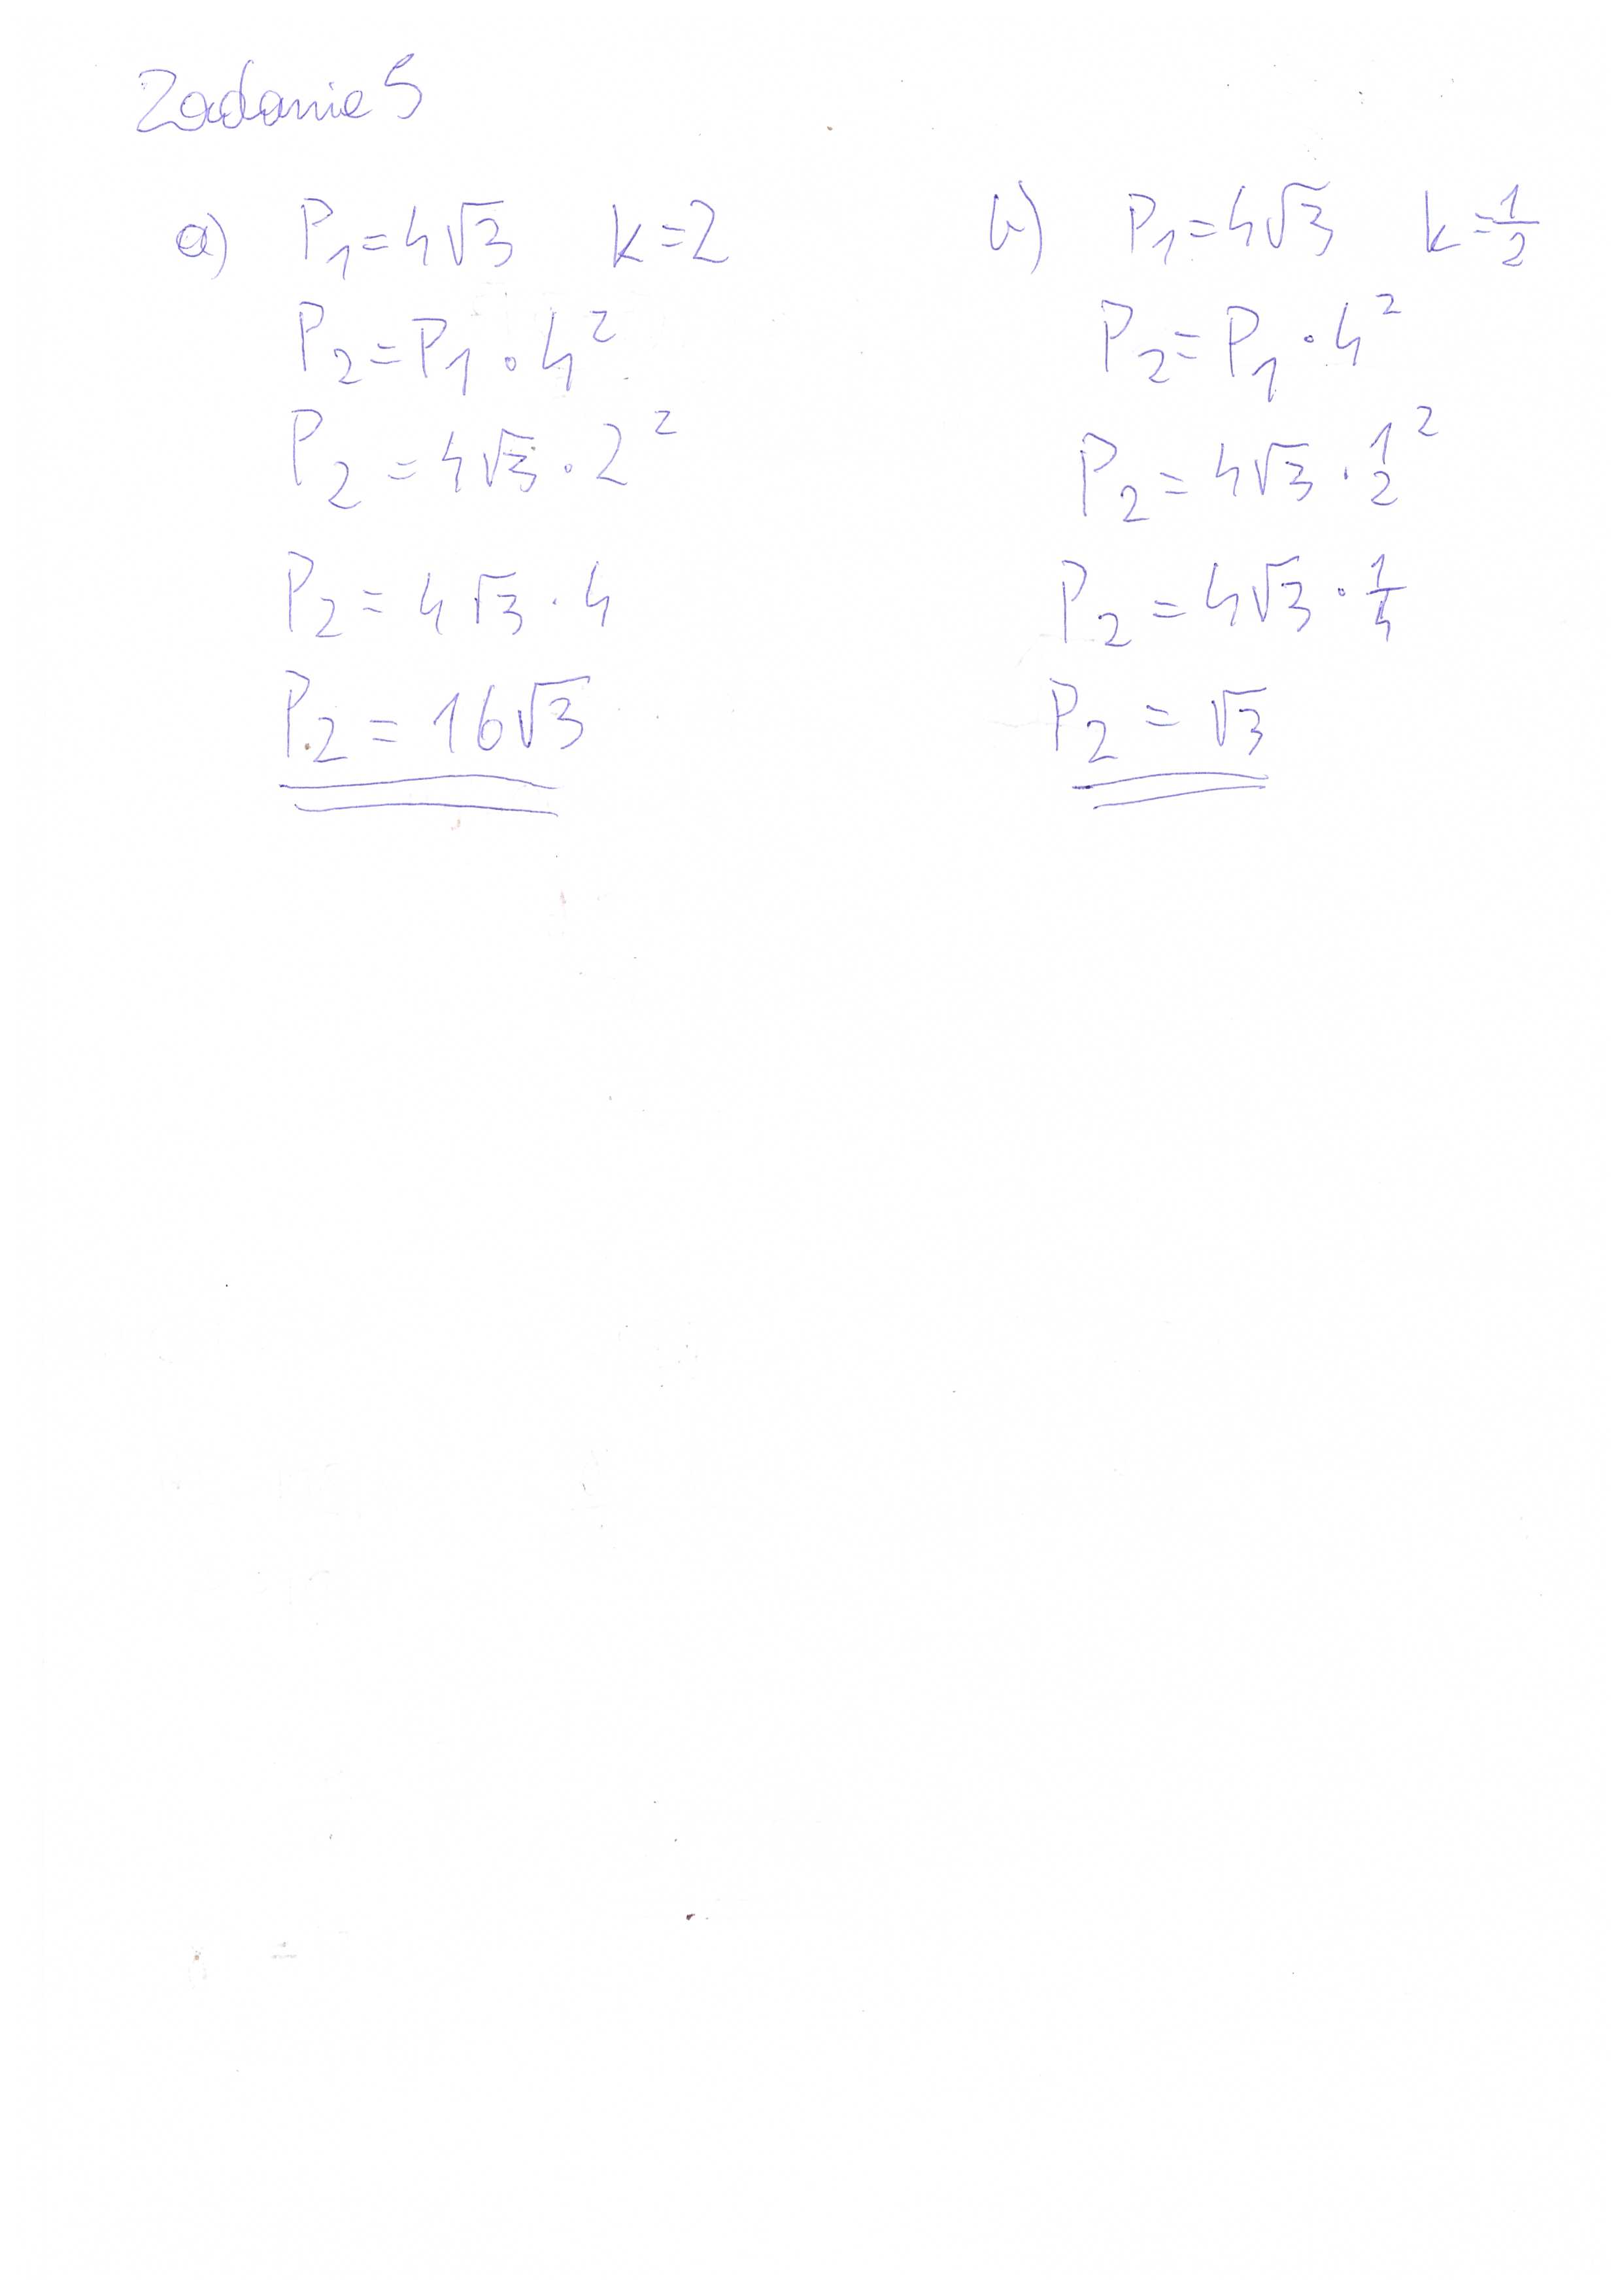 Zadanie 5
a) P₁=4√3 k=2
P₂=P₁·4²
P₂=4√3·2²
P₂=4√3·4
P₂=16√3
b) P₁=4√3 k=1/2
P₂=P₁·4²
P₂=4√3·1/2²
P₂=4√3·1/4
P₂=√3